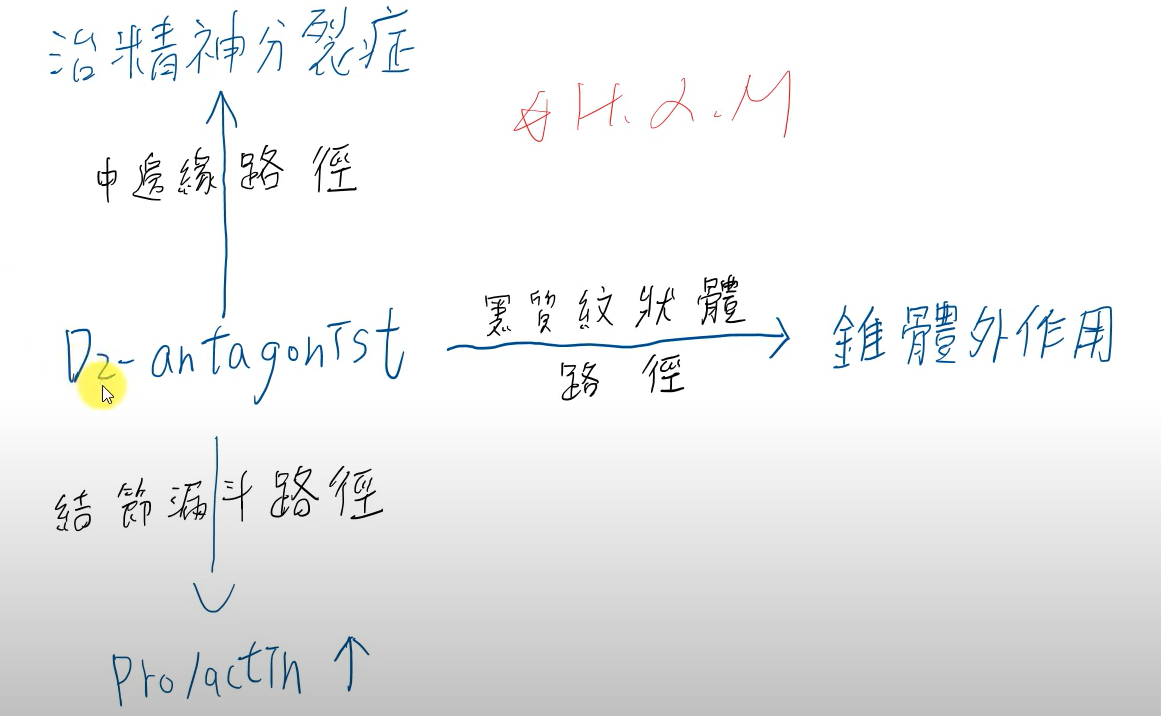 治精神分裂症
*H.α.M
中邊緣路徑
D2-antagonist
黑質紋狀體
路徑
錐體外作用
結節漏斗路徑
Prolactin ↑